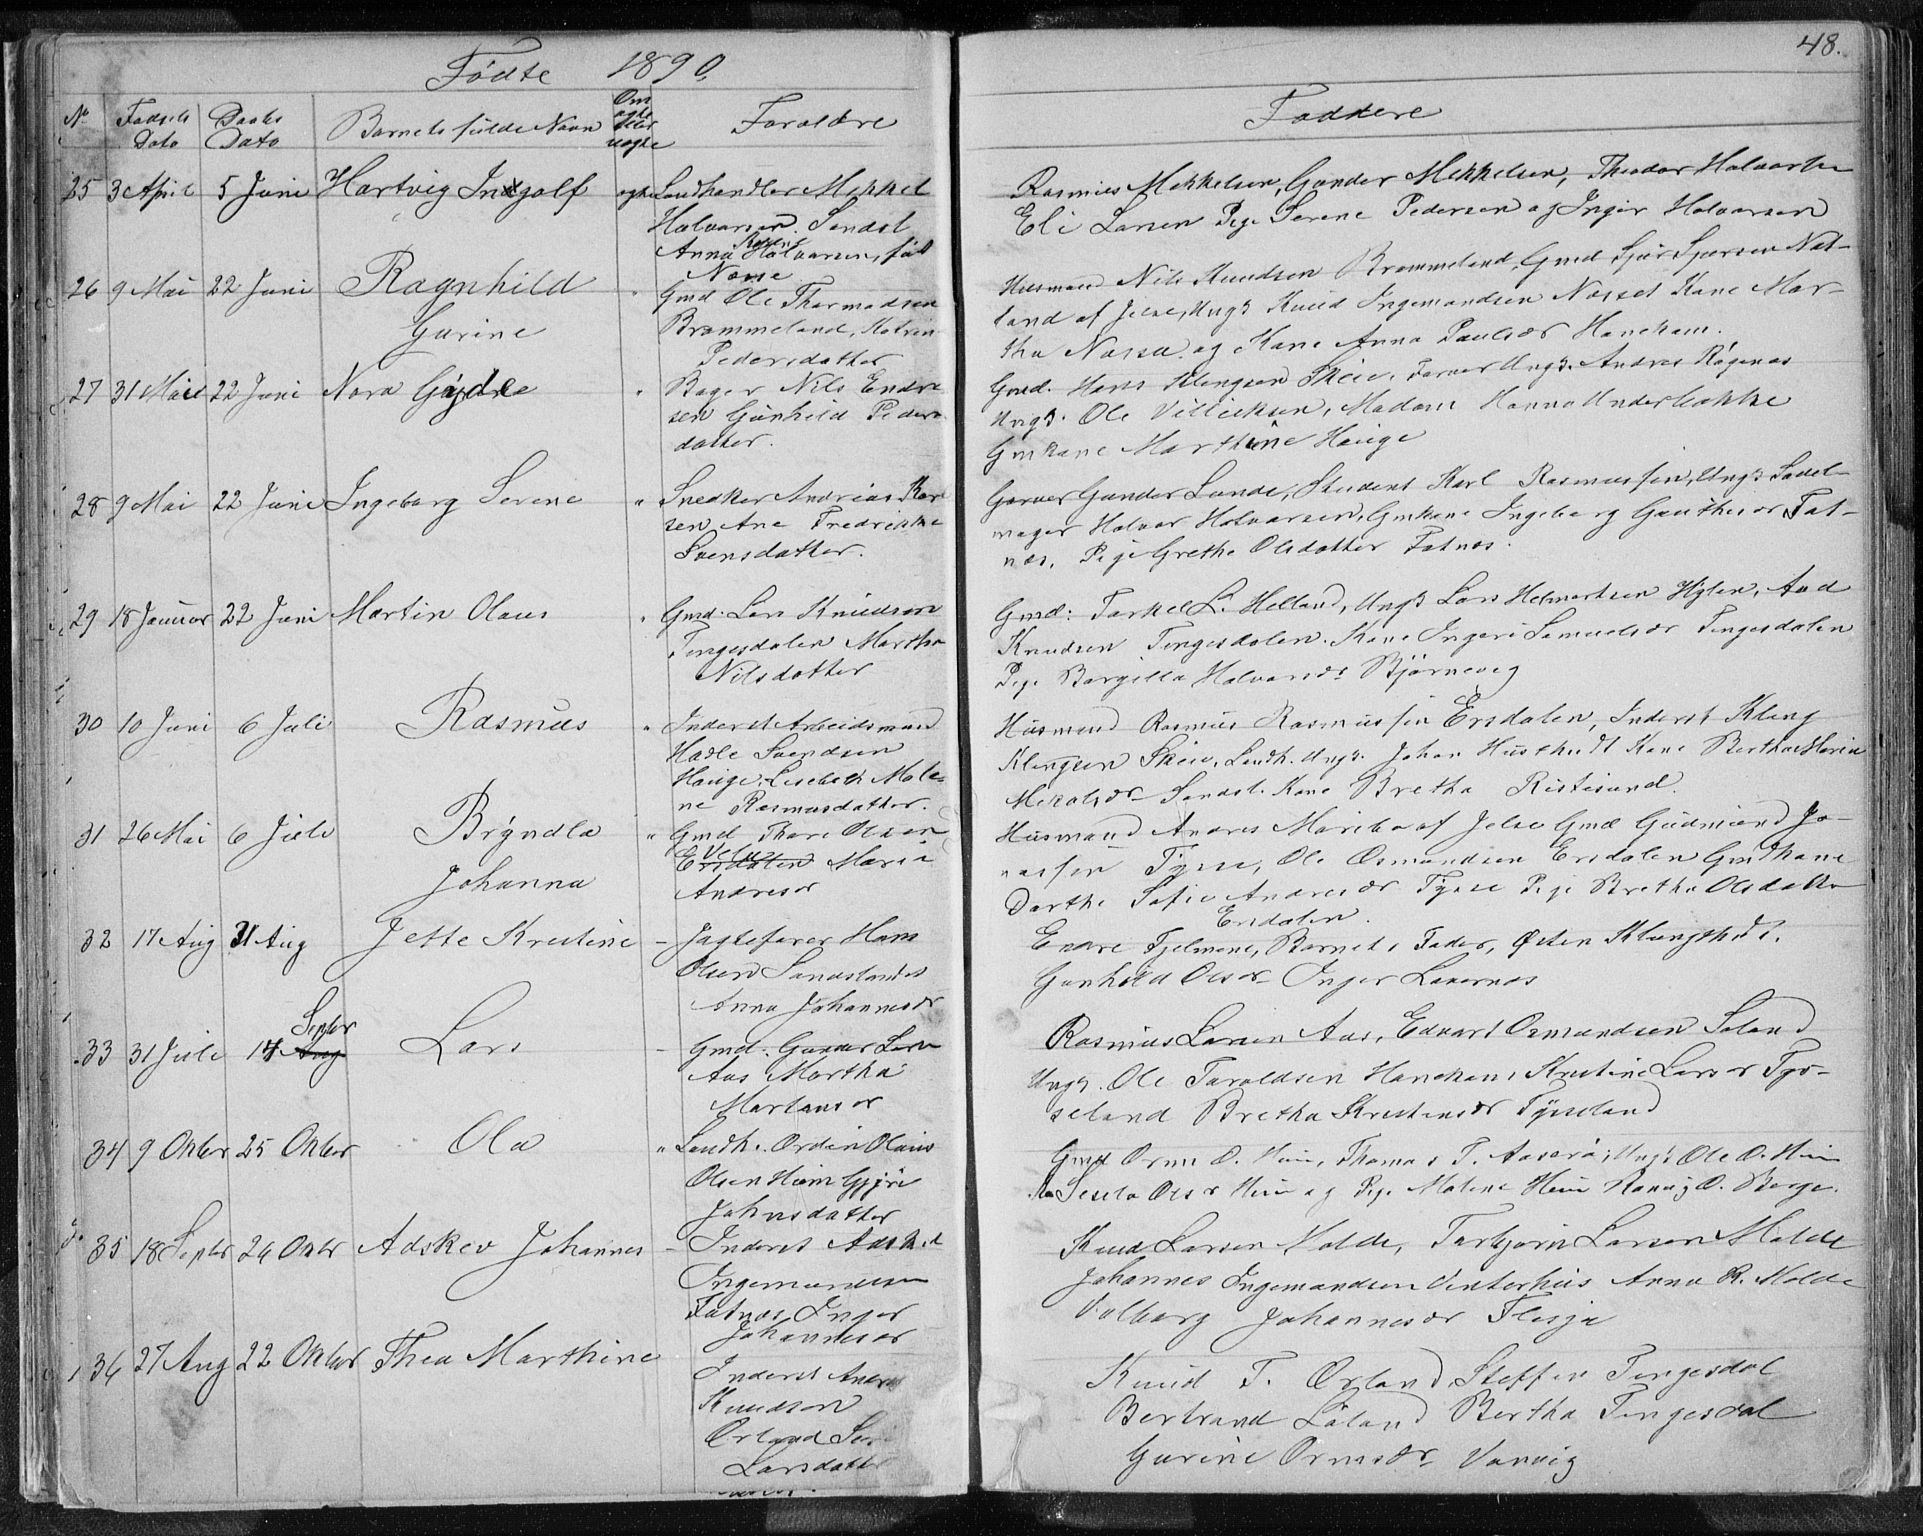 48.
Fødte 1890.
No Fødsels Dato Daabs Dato Barnets fulde Navn Om ægte eller uægte Forældre
Faddere
25 3 April 5 Juni Hartvig Ingolf ægte Landhandler Mekkel
Halvorsen Sandsl
Anna Halvorsen, fød
Næsse
Rasmus Mekkelsen, Gunder Mekkelsen, Theodor Halvorsen
Eli Larsen Pige Serene Pedersen og Inger Halvorsen
26 9 Mai 22 Juni Ragnhild Gurine " Gmd Ole Thormodsen
Brommeland, Katrin
Pedersdatter
Husmand Nils Knudsen Brommeland, Gmd Sjur Sjursen Nat-
land af Jelse, Ungk Knud Ingemundsen Næsset Kone Mar-
tha Næssa og Kone Anna Paulsdr Hanekam.
27 31 Mai 22 Juni Nora Gydle " Bager Nils Endre
sen Gunhild Peders
datter.
Gmd. Hans Klengsen Skeie, Farver Ungk. Andres Røgenes
Ungk. Ole Villiksen, Madam Hanna Underbakke
Gmkone Marthine Heige
28 9 Mai 22 Juni Ingeborg Serene " Snedker Andreas Kar
sen, Ane Fredrikke
Svensdatter.
Garver Gunder Lunde, Student Karl Rasmussen, Ungk Sadel-
mager Halvor Halvorsen, Gmkone Ingeborg Gauthesdr Fat-
næs, Pige Grethe Olsdatter Fatnæs.
29 18 Januar 22 Juni Martin Olaus " Gmd. Lars Knudsen
Tengesdalen Martha
Nilsdatter
Gmd. Torkel L. Helland, Ungk Lars Helmertsen Hylen, Aad
Knudsen Tengesdalen. Kone Ingeri Samuelsdr Tengesdalen
Pige Borgilla Halvorsdr Bjørnevig
30 10 Juni 6 Juli Rasmus " Inderst Arbeidsmand
Hadle Svendsen
Hauge, Lisebeth Male-
ne Rasmusdatter.
Husmand Rasmus Rasmussen Ersdalen, Inderst Kleng
Klengsen Skeie, Landh. Ungk. Johan Husthedt Kone Bertha Maria
Mekalsdr Sandsl. Kone Bretha Ristesund.
31 26 Mai 6 Juli Brýndla Johanna " Gmd Thore Olsen
Ersdalen Marie
Andresdr
Husmand Andres Maribo af Jelse Gmd Gudmund Jo-
nassen Tysse, Ole Osmundsen Ersdalen Gmkone
Dorthe Sofie Andresdr Tysse Pige Bretha Olsdatter
Ersdalen.
32 17 Aug 31 Aug Jette Kristine - Jagtefører Hans
Olsen Sandsl
Anna Johannesdr
Endre Fjelmone, Barnets Fader, Østen
Gunhild Olsdr Inger Lovernæs
33 31 Juli 14 Septbr Lars - Gmd. Gunder Larsen
Aas Martha
Mortensdr
Rasmus Larsen Aas, Edvart Osmundsen Søland
Ungk. Ole Taraldsen Hanekam, Kristine Larsdr Tys-
seland Bretha Kristensdr Tysseland
34 9 Oktbr 25 Oktbr Ola " Landh. Ordin Olaus
Olsen Heim Gjøri
Johnsdatter
Gmd Orm O. Heim, Thomas T. Aaserø, Ungk Ole O. Heim
Olsdr Heim og Pige Malene Heim Ranvig O. Berge.
35 18 Septbr 26 Oktbr Adskev Johannes - Inderst Adskel
Ingemundsen
Fatnæs Inger
Johannesdr
Knud Larsen Molde, Torbjørn Larsen Molde
Johannes Ingemundsen Vinterhus Anna R. Molde
Valborg Johannesdr Flesja
36 27 Aug 22 Oktbr Thea Marthine Inderst Andr
Knudsen
Ørland
Larsdatter
Knud T. Ørland Steffen Tengesdal
Bertrand Løland Bertha Tengesdal
Gurine Ormsdr Vanvig